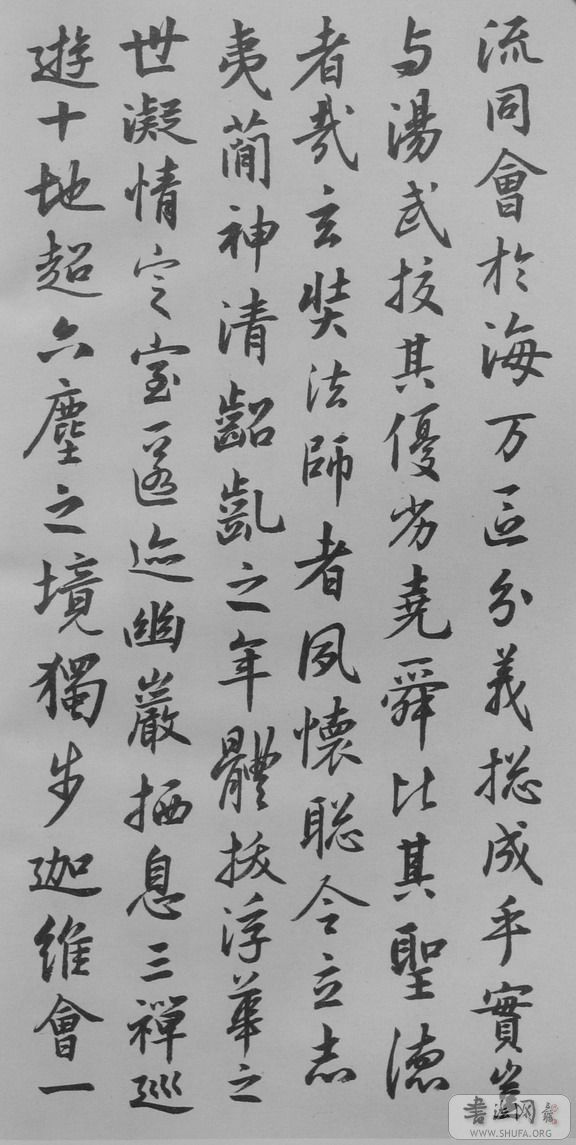 流同會於海万區分義揔成乎實豈
与湯武挍其優劣堯舜比其聖德
者哉玄奘法師者夙懷聡令立志
夷蕳神清齠齔之年體拔浮華之
世凝情定室匿迹幽巖栖息三禪巡
遊十地超六塵之境獨步迦維會一
書法网
WWW.SHUFA.ORG